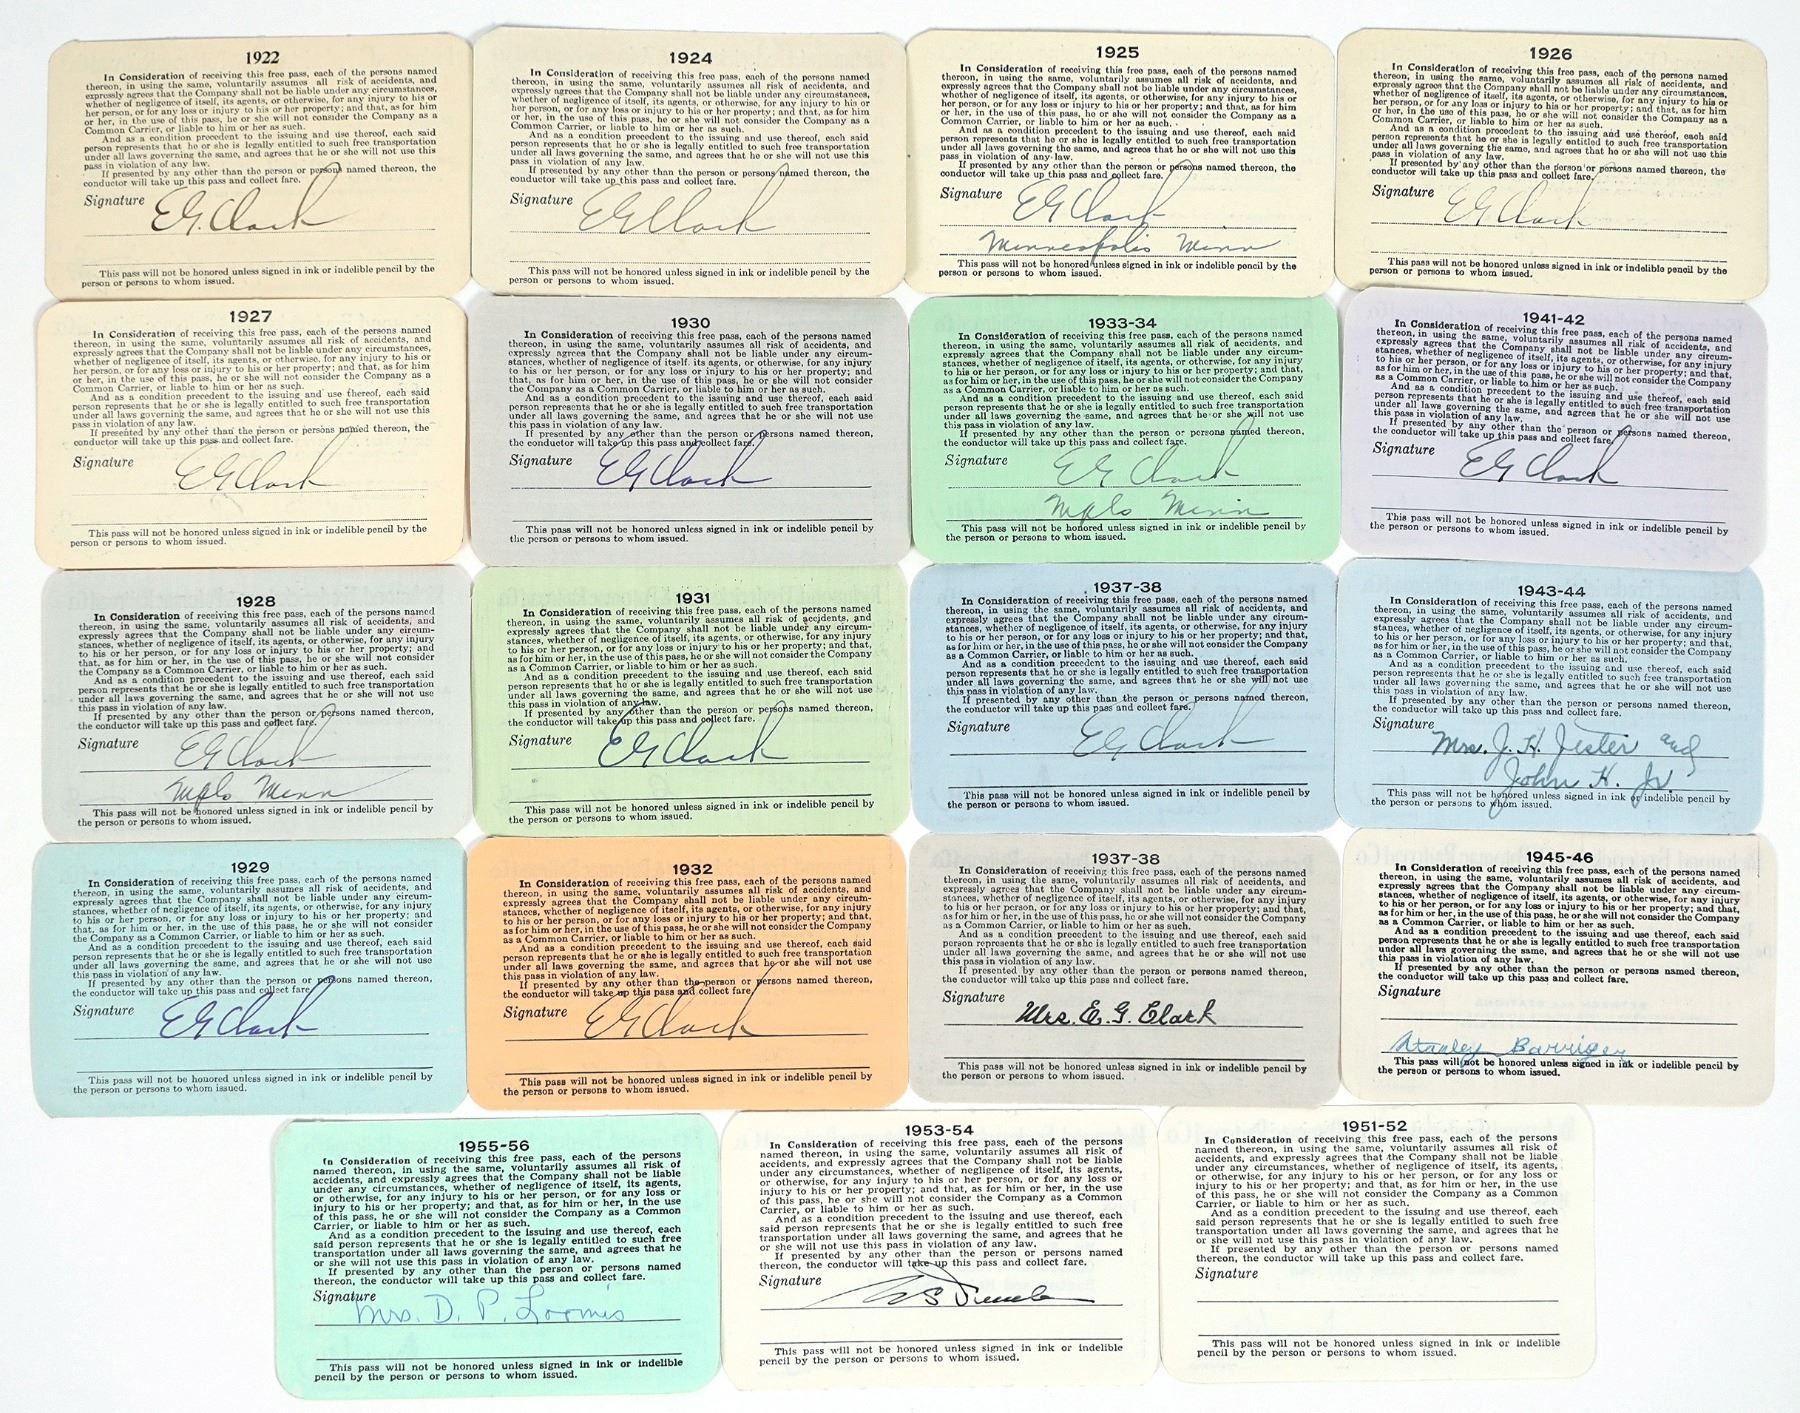 1922
In Consideration of receiving this free pass, each of the persons named
thereon, in using the same, voluntarily assumes all risk of accidents, and
expressly agrees that the Company shall not be liable under any circumstances,
whether of negligence of itself, its agents, or otherwise, for any injury to his or
her person, or for any loss or injury to his or her property; and that, as for him
or her, in the use of this pass, he or she will not consider the Company as a
Common Carrier, or liable to him or her as such.
And as a condition precedent to the issuing and use thereof, each said
person represents that he or she is legally entitled to such free transportation
under all laws governing the same, and agrees that he or she will not use this
pass in violation of any law.
If presented by any other than the person or persons named thereon, the
conductor will take up this pass and collect fare.
Signature E.G. Clark
This pass will not be honored unless signed in ink or indelible pencil by the
person or persons to whom issued.
1924
In Consideration of receiving this free pass, each of the persons named
thereon, in using the same, voluntarily assumes all risk of accidents, and
expressly agrees that the Company shall not be liable under any circumstances,
whether of negligence of itself, its agents, or otherwise, for any injury to his or
her person, or for any loss or injury to his or her property; and that, as for him
or her, in the use of this pass, he or she will not consider the Company as a
Common Carrier, or liable to him or her as such.
And as a condition precedent to the issuing and use thereof, each said
person represents that he or she is legally entitled to such free transportation
under all laws governing the same, and agrees that he or she will not use this
pass in violation of any law.
If presented by any other than the person or persons named thereon, the
conductor will take up this pass and collect fare.
Signature E G Clark
This pass will not be honored unless signed in ink or indelible pencil by the
person or persons to whom issued.
1925
In Consideration of receiving this free pass, each of the persons named
thereon, in using the same, voluntarily assumes all risk of accidents, and
expressly agrees that the Company shall not be liable under any circumstances,
whether of negligence of itself, its agents, or otherwise, for any injury to his or
her person, or for any loss or injury to his or her property; and that, as for him
or her, in the use of this pass, he or she will not consider the Company as a
Common Carrier, or liable to him or her as such.
And as a condition precedent to the issuing and use thereof, each said
person represents that he or she is legally entitled to such free transportation
under all laws governing the same, and agrees that he or she will not use this
pass in violation of any law.
If presented by any other than the person or persons named thereon, the
conductor will take up this pass and collect fare.
Signature E G Clark
Minneapolis Minn
This pass will not be honored unless signed in ink or indelible pencil by the
person or persons to whom issued.
1926
In Consideration of receiving this free pass, each of the persons named
thereon, in using the same, voluntarily assumes all risk of accidents, and
expressly agrees that the Company shall not be liable under any circumstances,
whether of negligence of itself, its agents, or otherwise, for any injury to his or
her person, or for any loss or injury to his or her property; and that, as for him
or her, in the use of this pass, he or she will not consider the Company as a
Common Carrier, or liable to him or her as such.
And as a condition precedent to the issuing and use thereof, each said
person represents that he or she is legally entitled to such free transportation
under all laws governing the same, and agrees that he or she will not use this
pass in violation of any law.
If presented by any other than the person or persons named thereon, the
conductor will take up this pass and collect fare.
Signature E G Clark
This pass will not be honored unless signed in ink or indelible pencil by the
person or persons to whom issued.
1927
In Consideration of receiving this free pass, each of the persons named
thereon, in using the same, voluntarily assumes all risk of accidents, and
expressly agrees that the Company shall not be liable under any circumstances,
whether of negligence of itself, its agents, or otherwise, for any injury to his or
her person, or for any loss or injury to his or her property; and that, as for him
or her, in the use of this pass, he or she will not consider the Company as a
Common Carrier, or liable to him or her as such.
And as a condition precedent to the issuing and use thereof, each said
person represents that he or she is legally entitled to such free transportation
under all laws governing the same, and agrees that he or she will not use this
pass in violation of any law.
If presented by any other than the person or persons named thereon, the
conductor will take up this pass and collect fare.
Signature E G Clark
This pass will not be honored unless signed in ink or indelible pencil by the
person or persons to whom issued.
1930
In Consideration of receiving this free pass, each of the persons named
thereon, in using the same, voluntarily assumes all risk of accidents, and
expressly agrees that the Company shall not be liable under any circum-
stances, whether of negligence of itself, its agents, or otherwise, for any injury
to his or her person, or for any loss or injury to his or her property; and
that, as for him or her, in the use of this pass, he or she will not consider
the Company as a Common Carrier, or liable to him or her as such.
And as a condition precedent to the issuing and use thereof, each said
person represents that he or she is legally entitled to such free transportation
under all laws governing the same, and agrees that he or she will not use
this pass in violation of any law.
If presented by any other than the person or persons named thereon,
the conductor will take up this pass and collect fare.
Signature E G Clark
This pass will not be honored unless signed in ink or indelible pencil by
the person or persons to whom issued.
1933-34
In Consideration of receiving this free pass, each of the persons named
thereon, in using the same, voluntarily assumes all risk of accidents, and
expressly agrees that the Company shall not be liable under any circum-
stances, whether of negligence of itself, its agents, or otherwise, for any injury
to his or her person, or for any loss or injury to his or her property; and that,
as for him or her, in the use of this pass, he or she will not consider the Company
as a Common Carrier, or liable to him or her as such.
And as a condition precedent to the issuing and use thereof, each said
person represents that he or she is legally entitled to such free transportation
under all laws governing the same, and agrees that he or she will not use
this pass in violation of any law.
If presented by any other than the person or persons named thereon,
the conductor will take up this pass and collect fare.
Signature E G Clark
Mpls Minn
This pass will not be honored unless signed in ink or indelible pencil by
the person or persons to whom issued.
1941-42
In Consideration of receiving this free pass, each of the persons named
thereon, in using the same, voluntarily assumes all risk of accidents, and
expressly agrees that the Company shall not be liable under any circum-
stances, whether of negligence of itself, its agents, or otherwise, for any injury
to his or her person, or for any loss or injury to his or her property; and that,
as for him or her, in the use of this pass, he or she will not consider the Company
as a Common Carrier, or liable to him or her as such.
And as a condition precedent to the issuing and use thereof, each said
person represents that he or she is legally entitled to such free transportation
under all laws governing the same, and agrees that he or she will not use
this pass in violation of any law.
If presented by any other than the person or persons named thereon,
the conductor will take up this pass and collect fare.
Signature E G Clark
This pass will not be honored unless signed in ink or indelible pencil by
the person or persons to whom issued.
1928
In Consideration of receiving this free pass, each of the persons named
thereon, in using the same, voluntarily assumes all risk of accidents, and
expressly agrees that the Company shall not be liable under any circum-
stances, whether of negligence of itself, its agents, or otherwise, for any injury
to his or her person, or for any loss or injury to his or her property; and
that, as for him or her, in the use of this pass, he or she will not consider
the Company as a Common Carrier, or liable to him or her as such.
And as a condition precedent to the issuing and use thereof, each said
person represents that he or she is legally entitled to such free transportation
under all laws governing the same, and agrees that he or she will not use
this pass in violation of any law.
If presented by any other than the person or persons named thereon,
the conductor will take up this pass and collect fare.
Signature E G Clark
Mpls Minn
This pass will not be honored unless signed in ink or indelible pencil by
the person or persons to whom issued.
1931
In Consideration of receiving this free pass, each of the persons named
thereon, in using the same, voluntarily assumes all risk of accidents, and
expressly agrees that the Company shall not be liable under any circum-
stances, whether of negligence of itself, its agents, or otherwise, for any injury
to his or her person, or for any loss or injury to his or her property; and that,
as for him or her, in the use of this pass, he or she will not consider the Company
as a Common Carrier, or liable to him or her as such.
And as a condition precedent to the issuing and use thereof, each said
person represents that he or she is legally entitled to such free transportation
under all laws governing the same, and agrees that he or she will not use
this pass in violation of any law.
If presented by any other than the person or persons named thereon,
the conductor will take up this pass and collect fare.
Signature E G Clark
This pass will not be honored unless signed in ink or indelible pencil by
the person or persons to whom issued.
1937-38
In Consideration of receiving this free pass, each of the persons named
thereon, in using the same, voluntarily assumes all risk of accidents, and
expressly agrees that the Company shall not be liable under any circum-
stances, whether of negligence of itself, its agents, or otherwise, for any injury
to his or her person, or for any loss or injury to his or her property; and that,
as for him or her, in the use of this pass, he or she will not consider the Company
as a Common Carrier, or liable to him or her as such.
And as a condition precedent to the issuing and use thereof, each said
person represents that he or she is legally entitled to such free transportation
under all laws governing the same, and agrees that he or she will not use
this pass in violation of any law.
If presented by any other than the person or persons named thereon,
the conductor will take up this pass and collect fare.
Signature E G Clark
This pass will not be honored unless signed in ink or indelible pencil by
the person or persons to whom issued.
1943-44
In Consideration of receiving this free pass, each of the persons named
thereon, in using the same, voluntarily assumes all risk of accidents, and
expressly agrees that the Company shall not be liable under any circum-
stances, whether of negligence of itself, its agents, or otherwise, for any injury
to his or her person, or for any loss or injury to his or her property; and that,
as for him or her, in the use of this pass, he or she will not consider the Company
as a Common Carrier, or liable to him or her as such.
And as a condition precedent to the issuing and use thereof, each said
person represents that he or she is legally entitled to such free transportation
under all laws governing the same, and agrees that he or she will not use
this pass in violation of any law.
If presented by any other than the person or persons named thereon,
the conductor will take up this pass and collect fare.
Signature Mrs. J. H. Jester and
John H. Jr.
This pass will not be honored unless signed in ink or indelible pencil by
the person or persons to whom issued.
1929
In Consideration of receiving this free pass, each of the persons named
thereon, in using the same, voluntarily assumes all risk of accidents, and
expressly agrees that the Company shall not be liable under any circum-
stances, whether of negligence of itself, its agents, or otherwise, for any injury
to his or her person, or for any loss or injury to his or her property; and
that, as for him or her, in the use of this pass, he or she will not consider
the Company as a Common Carrier, or liable to him or her as such.
And as a condition precedent to the issuing and use thereof, each said
person represents that he or she is legally entitled to such free transportation
under all laws governing the same, and agrees that he or she will not use
this pass in violation of any law.
If presented by any other than the person or persons named thereon,
the conductor will take up this pass and collect fare.
Signature E G Clark
This pass will not be honored unless signed in ink or indelible pencil by
the person or persons to whom issued.
1932
In Consideration of receiving this free pass, each of the persons named
thereon, in using the same, voluntarily assumes all risk of accidents, and
expressly agrees that the Company shall not be liable under any circum-
stances, whether of negligence of itself, its agents, or otherwise, for any injury
to his or her person, or for any loss or injury to his or her property; and that,
as for him or her, in the use of this pass, he or she will not consider the Company
as a Common Carrier, or liable to him or her as such.
And as a condition precedent to the issuing and use thereof, each said
person represents that he or she is legally entitled to such free transportation
under all laws governing the same, and agrees that he or she will not use
this pass in violation of any law.
If presented by any other than the person or persons named thereon,
the conductor will take up this pass and collect fare.
Signature E G Clark
This pass will not be honored unless signed in ink or indelible pencil by
the person or persons to whom issued.
1937-38
In Consideration of receiving this free pass, each of the persons named
thereon, in using the same, voluntarily assumes all risk of accidents, and
expressly agrees that the Company shall not be liable under any circum-
stances, whether of negligence of itself, its agents, or otherwise, for any injury
to his or her person, or for any loss or injury to his or her property; and that,
as for him or her, in the use of this pass, he or she will not consider the Company
as a Common Carrier, or liable to him or her as such.
And as a condition precedent to the issuing and use thereof, each said
person represents that he or she is legally entitled to such free transportation
under all laws governing the same, and agrees that he or she will not use
this pass in violation of any law.
If presented by any other than the person or persons named thereon,
the conductor will take up this pass and collect fare.
Signature
Mrs. E. G. Clark
This pass will not be honored unless signed in ink or indelible pencil by
the person or persons to whom issued.
1945-46
In Consideration of receiving this free pass, each of the persons named
thereon, in using the same, voluntarily assumes all risk of accidents, and
expressly agrees that the Company shall not be liable under any circum-
stances, whether of negligence of itself, its agents, or otherwise, for any injury
to his or her person, or for any loss or injury to his or her property; and that,
as for him or her, in the use of this pass, he or she will not consider the Company
as a Common Carrier, or liable to him or her as such.
And as a condition precedent to the issuing and use thereof, each said
person represents that he or she is legally entitled to such free transportation
under all laws governing the same, and agrees that he or she will not use
this pass in violation of any law.
If presented by any other than the person or persons named thereon,
the conductor will take up this pass and collect fare.
Signature
Stanley Barriger
This pass will not be honored unless signed in ink or indelible pencil by
the person or persons to whom issued.
1955-56
In Consideration of receiving this free pass, each of the persons
named thereon, in using the same, voluntarily assumes all risk of
accidents, and expressly agrees that the Company shall not be liable
under any circumstances, whether of negligence of itself, its agents,
or otherwise, for any injury to his or her person, or for any loss or
injury to his or her property; and that, as for him or her, in the use
of this pass, he or she will not consider the Company as a Common
Carrier, or liable to him or her as such.
And as a condition precedent to the issuing and use thereof, each
said person represents that he or she is legally entitled to such free
transportation under all laws governing the same, and agrees that he
or she will not use this pass in violation of any law.
If presented by any other than the person or persons named
thereon, the conductor will take up this pass and collect fare.
Signature
Mrs. D. P. Loomis
This pass will not be honored unless signed in ink or indelible
pencil by the person or persons to whom issued.
1953-54
In Consideration of receiving this free pass, each of the persons
named thereon, in using the same, voluntarily assumes all risk of
accidents, and expressly agrees that the Company shall not be liable
under any circumstances, whether of negligence of itself, its agents,
or otherwise, for any injury to his or her person, or for any loss or
injury to his or her property; and that, as for him or her, in the use
of this pass, he or she will not consider the Company as a Common
Carrier, or liable to him or her as such.
And as a condition precedent to the issuing and use thereof, each
said person represents that he or she is legally entitled to such free
transportation under all laws governing the same, and agrees that he
or she will not use this pass in violation of any law.
If presented by any other than the person or persons named
thereon, the conductor will take up this pass and collect fare.
Signature
This pass will not be honored unless signed in ink or indelible
pencil by the person or persons to whom issued.
1951-52
In Consideration of receiving this free pass, each of the persons
named thereon, in using the same, voluntarily assumes all risk of
accidents, and expressly agrees that the Company shall not be liable
under any circumstances, whether of negligence of itself, its agents,
or otherwise, for any injury to his or her person, or for any loss or
injury to his or her property; and that, as for him or her, in the use
of this pass, he or she will not consider the Company as a Common
Carrier, or liable to him or her as such.
And as a condition precedent to the issuing and use thereof, each
said person represents that he or she is legally entitled to such free
transportation under all laws governing the same, and agrees that he
or she will not use this pass in violation of any law.
If presented by any other than the person or persons named
thereon, the conductor will take up this pass and collect fare.
Signature
This pass will not be honored unless signed in ink or indelible
pencil by the person or persons to whom issued.